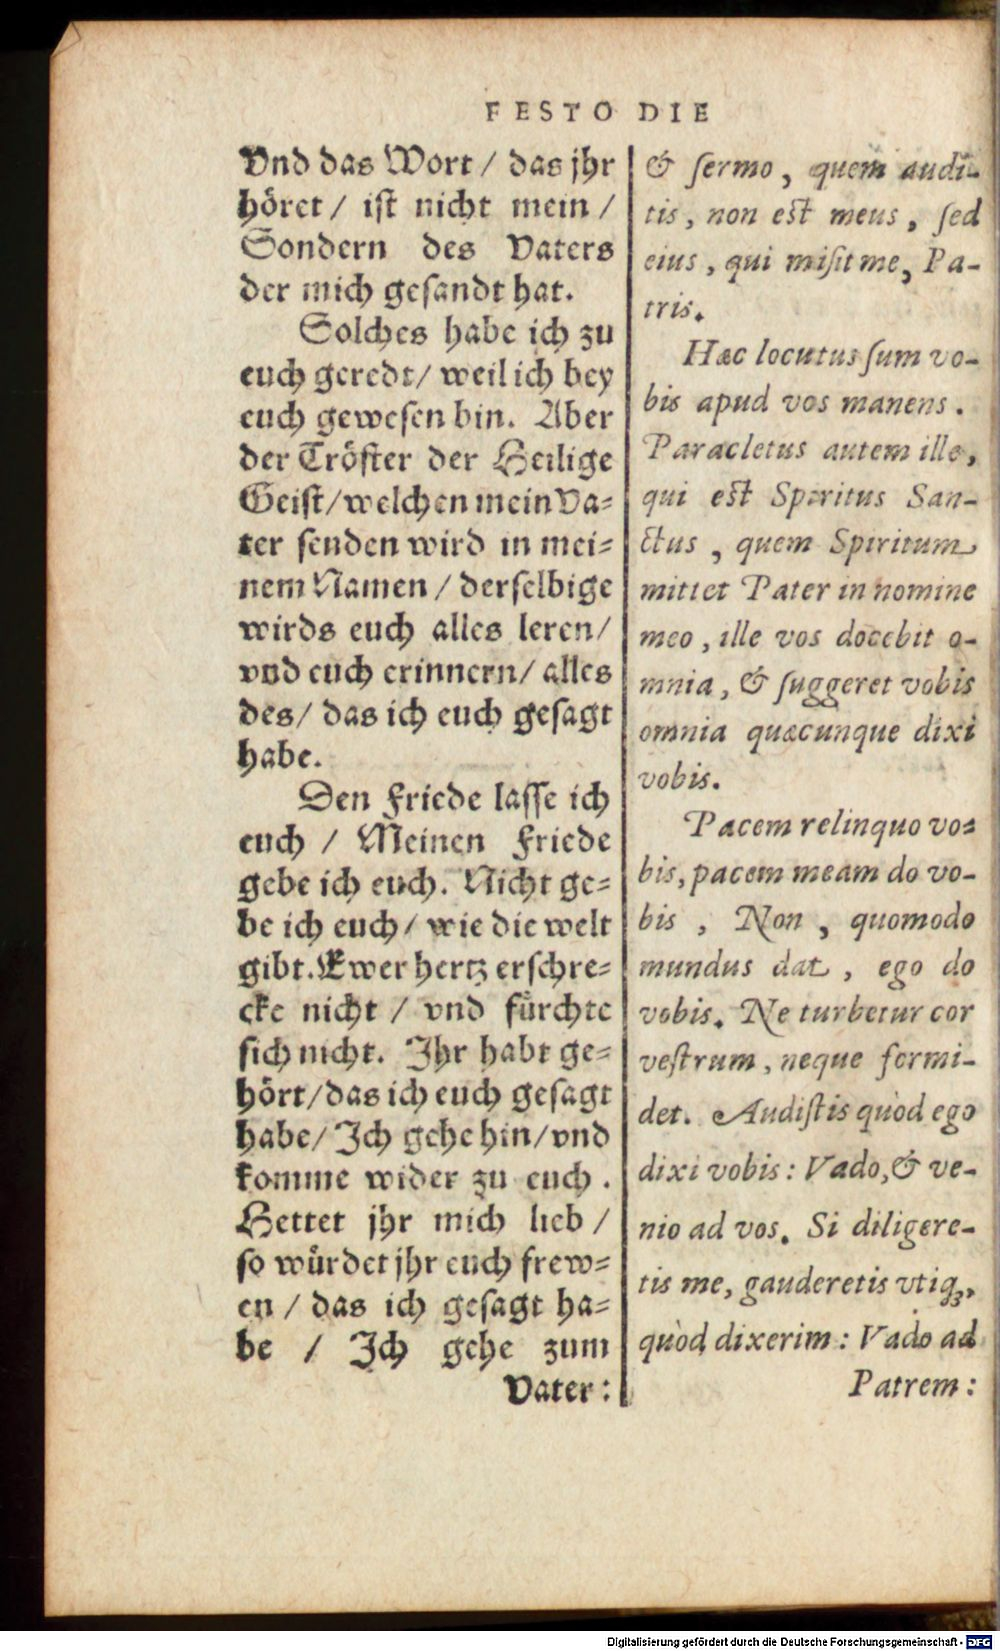 FESTO DIE
Vnd das Wort / das jhr
höret / ist nicht mein /
Sondern des Vaters
der mich gesandt hat.
Solches habe ich zu
euch geredt / weil ich bey
euch gewesen bin. Aber
der Tröster der Heilige
Geist / welchen mein Va-
ter senden wird in mei-
nem Namen / derselbige
wirds euch alles leren /
vnd euch erinnern / alles
des / das ich euch gesagt
habe.
Den Friede lasse ich
euch / Meinen Friede
gebe ich euch. Nicht ge-
be ich euch / wie die welt
gibt. Ewer hertz erschre-
cke nicht / vnd fürchte
sich nicht. Ihr habt ge-
hört / das ich euch gesagt
habe / Ich gehe hin / vnd
komme wider zu euch.
Hettet jhr mich lieb /
so würdet jhr euch frew-
en / das ich gesagt ha-
be / Ich gehe zum
Vater:
& ſermo, quem audi-
tis, non est meus, ſed
eius, qui miſit me, Pa-
tris.
Hæc locutus ſum vo-
bis apud vos manens.
Paracletus autem ille,
qui est Spiritus San-
ctus, quem Spiritum
mittet Pater in nomine
meo, ille vos docebit o-
mnia, & ſuggeret vobis
omnia quæcunque dixi
vobis.
Pacem relinquo vo-
bis, pacem meam do vo-
bis, Non, quomodo
mundus dat, ego do
vobis. Ne turbetur cor
veſtrum, neque formi-
det. Audiſtis quòd ego
dixi vobis: Vado, & ve-
nio ad vos. Si diligere-
tis me, gauderetis vtiqꝫ,
quòd dixerim: Vado ad
Patrem:
Digitalisierung gefördert durch die Deutsche Forschungsgemeinschaft - DFG